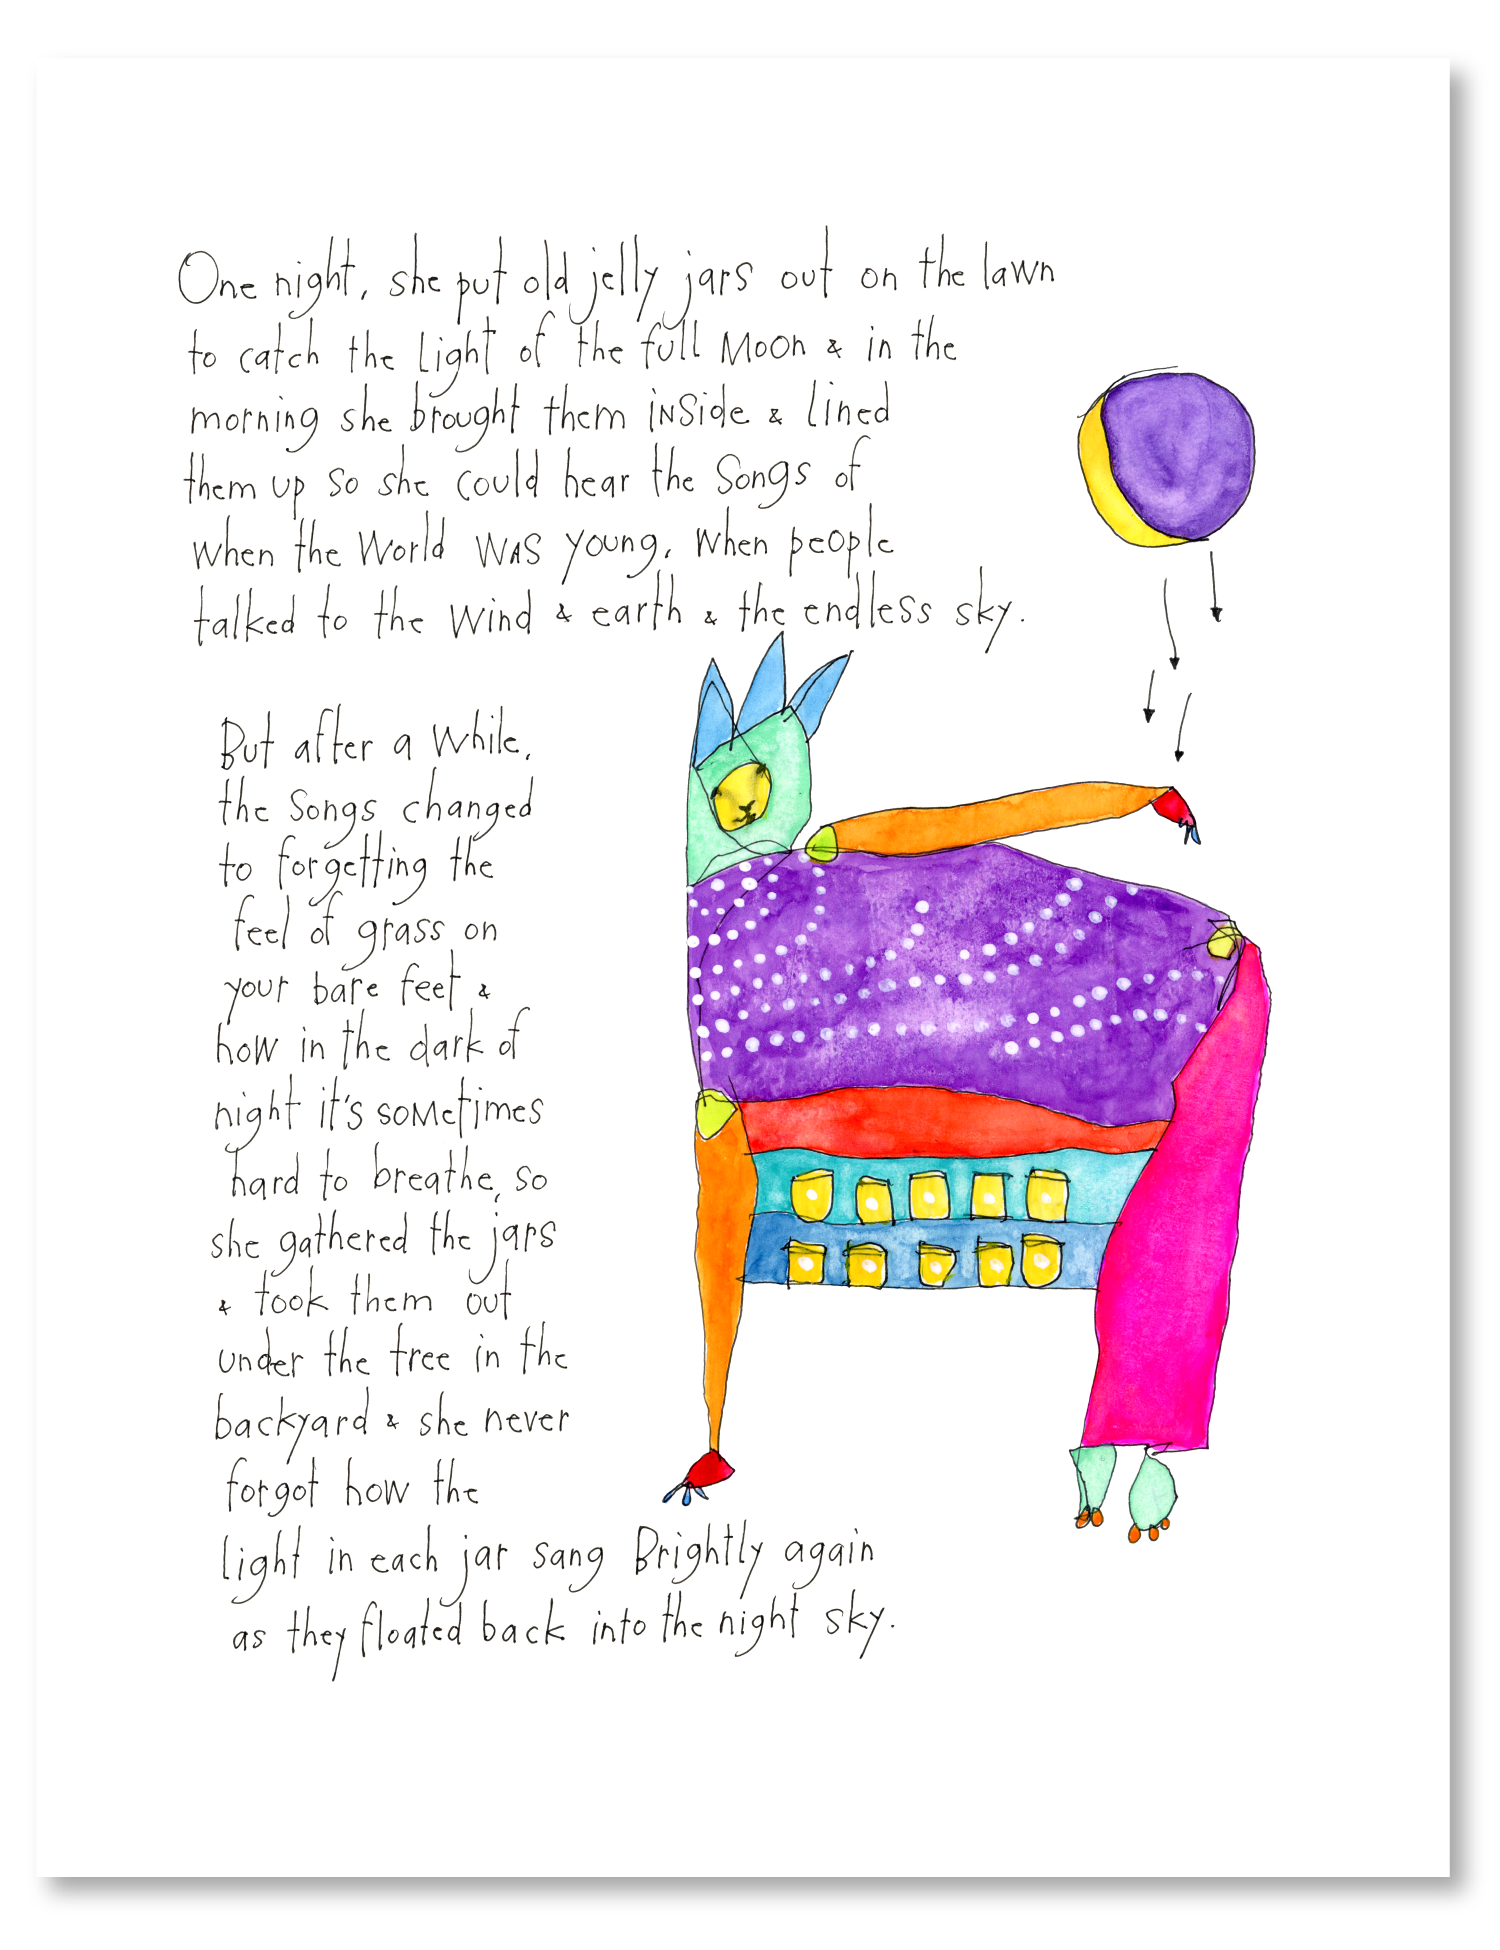 One night, she put old jelly jars out on the lawn
to catch the light of the full Moon & in the
morning she brought them inside & lined
them up so she could hear the songs of
when the world was young, when people
talked to the wind & earth & the endless sky.
But after a while,
the songs changed
to forgetting the
feel of grass on
your bare feet &
how in the dark of
night it's sometimes
hard to breathe, so
she gathered the jars
& took them out
under the tree in the
backyard & she never
forgot how the
light in each jar sang Brightly again
as they floated back into the night sky.